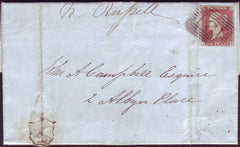 Russell
A Campbell Esquire
2 Albyn Place